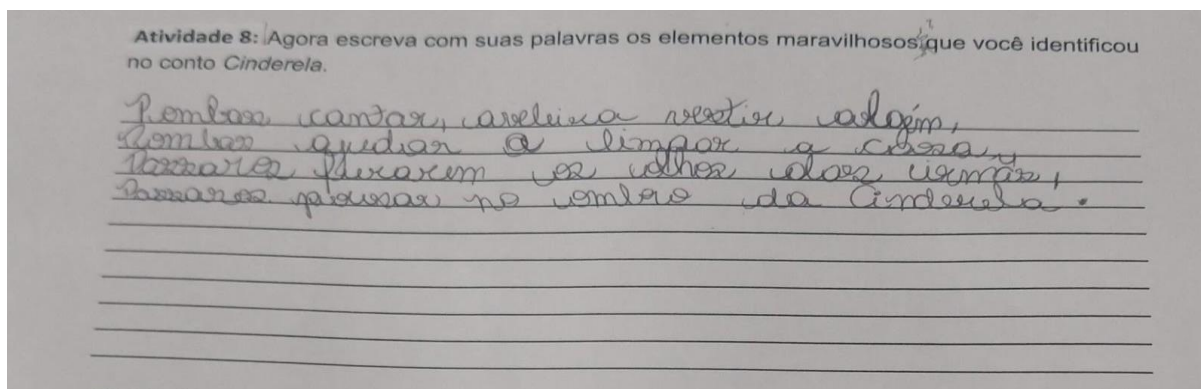 Atividade 8: Agora escreva com suas palavras os elementos maravilhosos que você identificou
no conto Cinderela.
Pombas cantar, aveleira vestir,
Pombas ajudar a limpar a casa,
Passares furarem os olhos das irmãs,
Passares pousar no ombro da Cinderela.